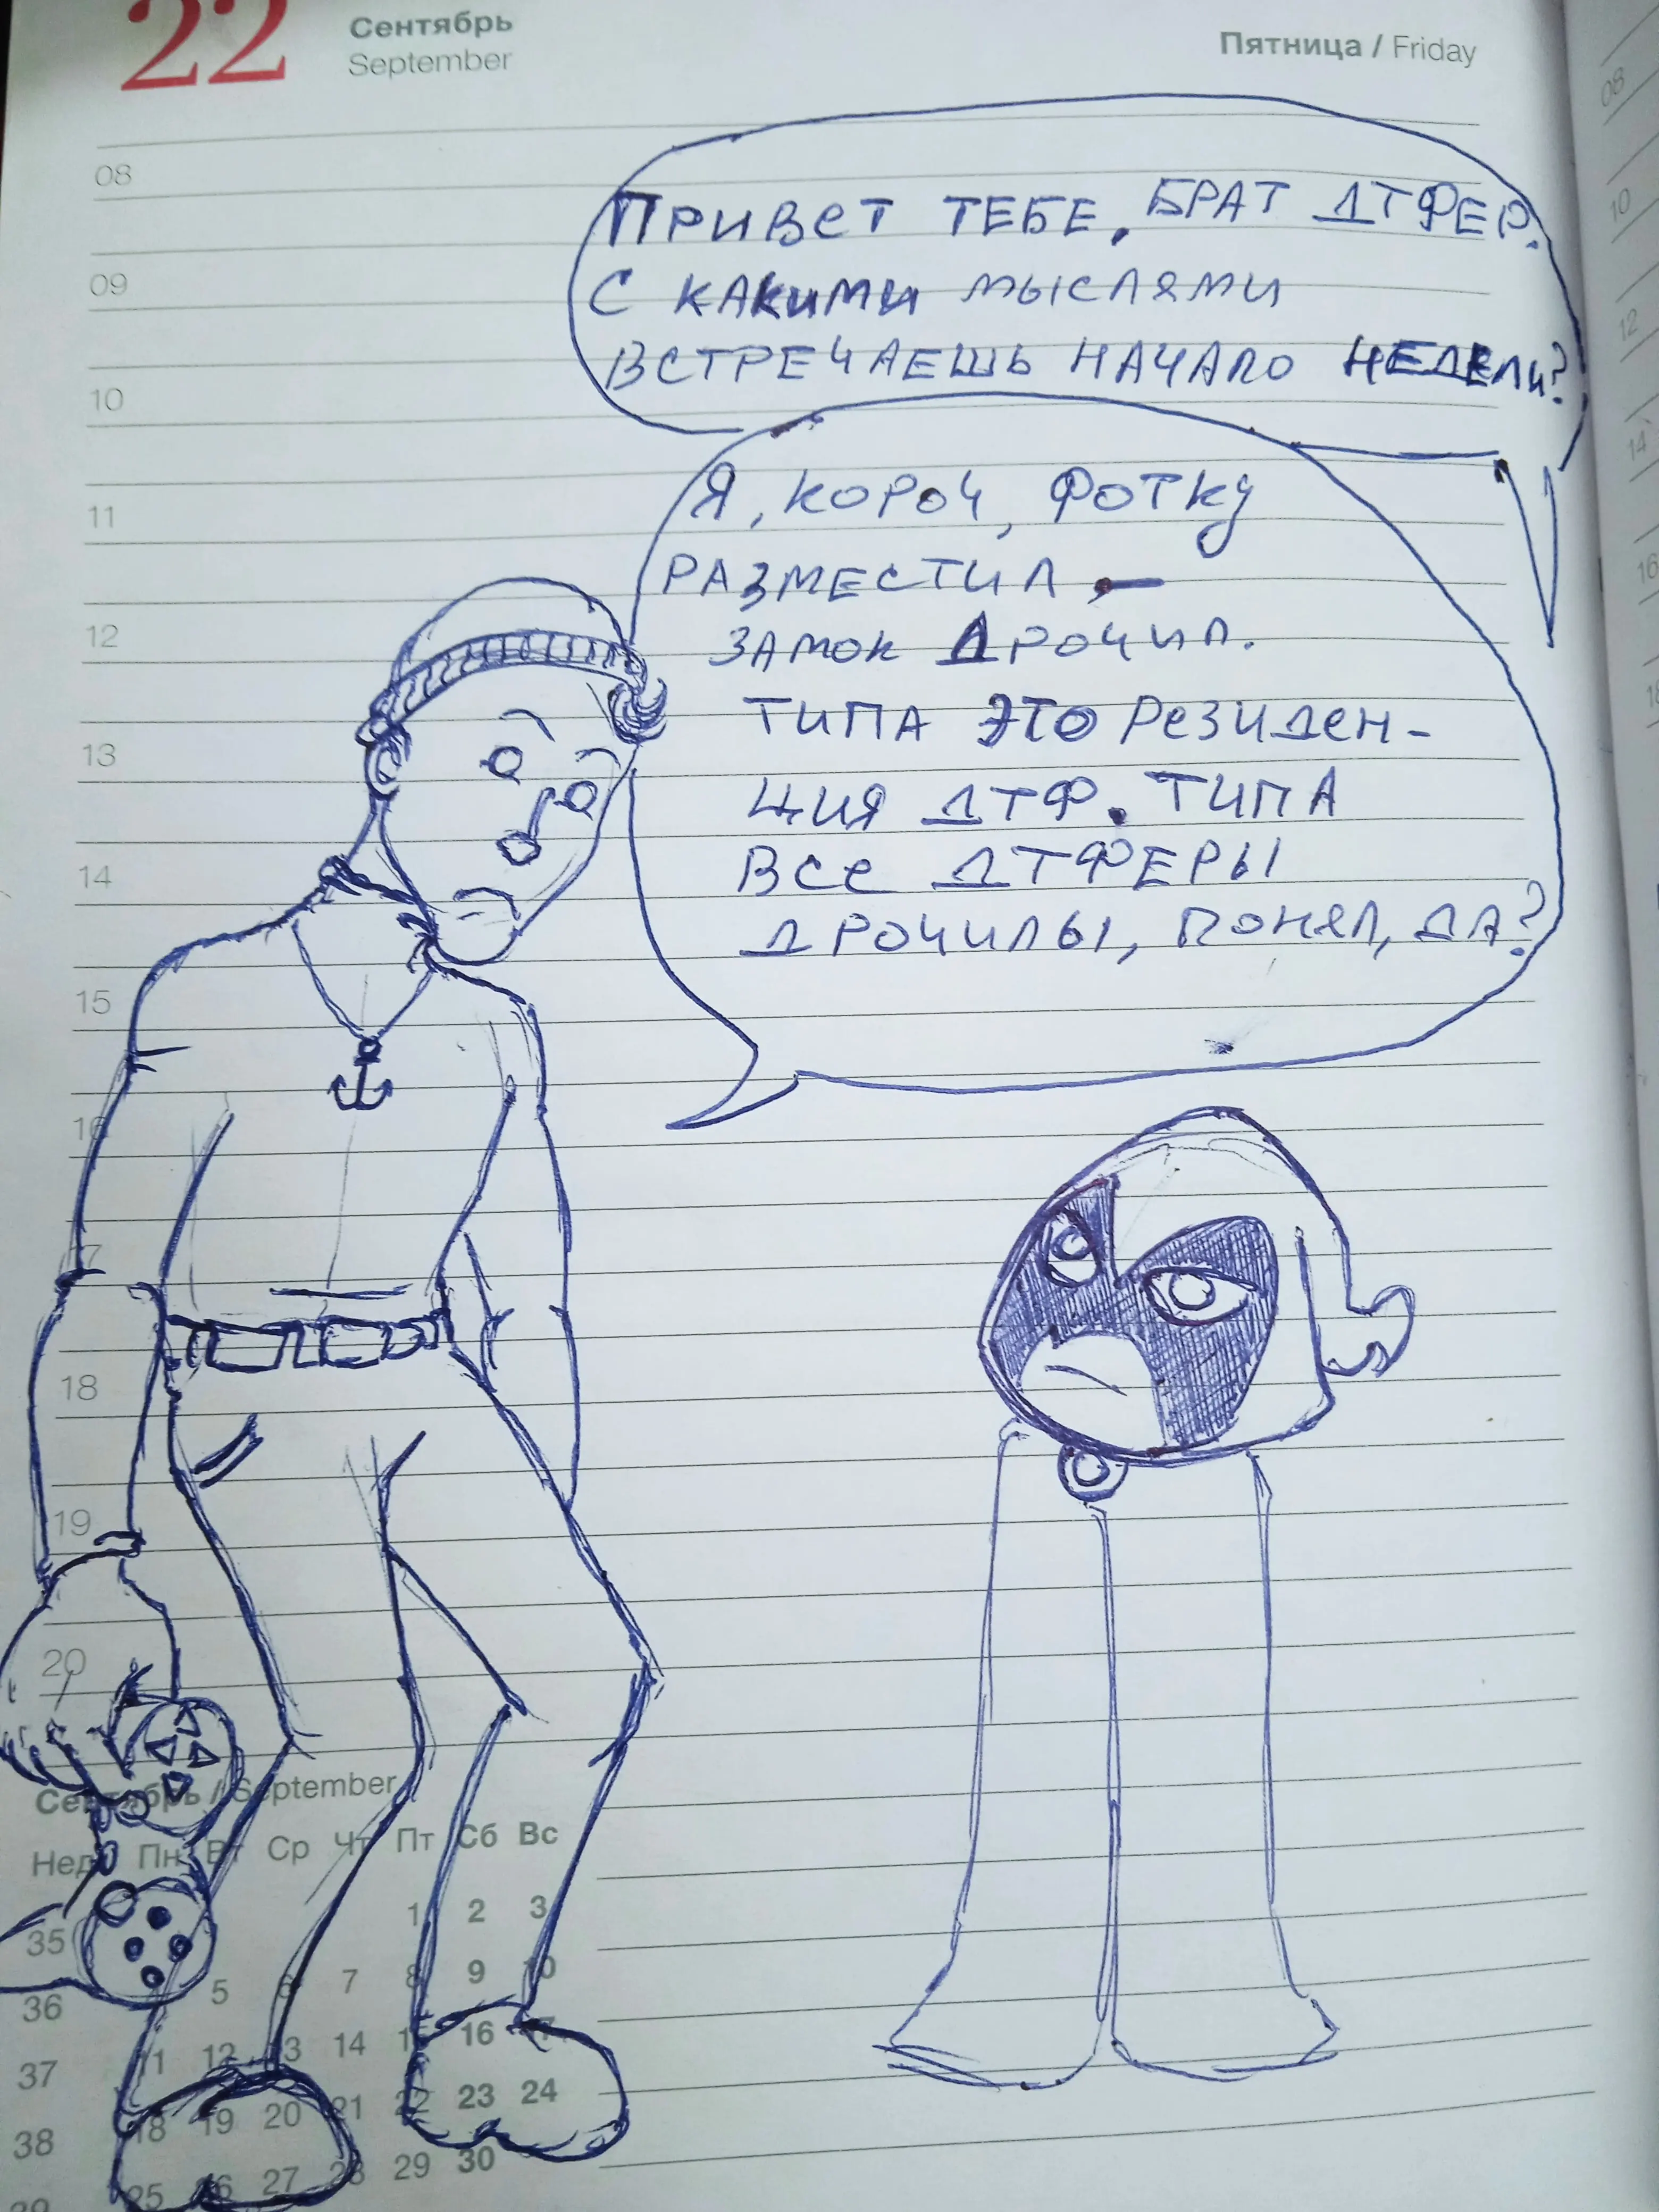 22
Сентябрь
September
Пятница / Friday
08
09
10
11
12
13
14
15
16
17
18
19
20
Привет тебе, брат дтфер.
С какими мыслями
встречаешь начало недели?
Я, короч, фотку
разместил, —
замок Дрочил.
Типа это резиден-
ция дтф. Типа
все дтферы
дрочилы, понял, да?
Сентябрь / September
Нед. Пн Вт Ср Чт Пт Сб Вс
35 1 2 3
36 5 6 7 8 9 10
37 11 12 13 14 15 16 17
38 18 19 20 21 22 23 24
39 25 26 27 28 29 30
08
10
12
14
16
18